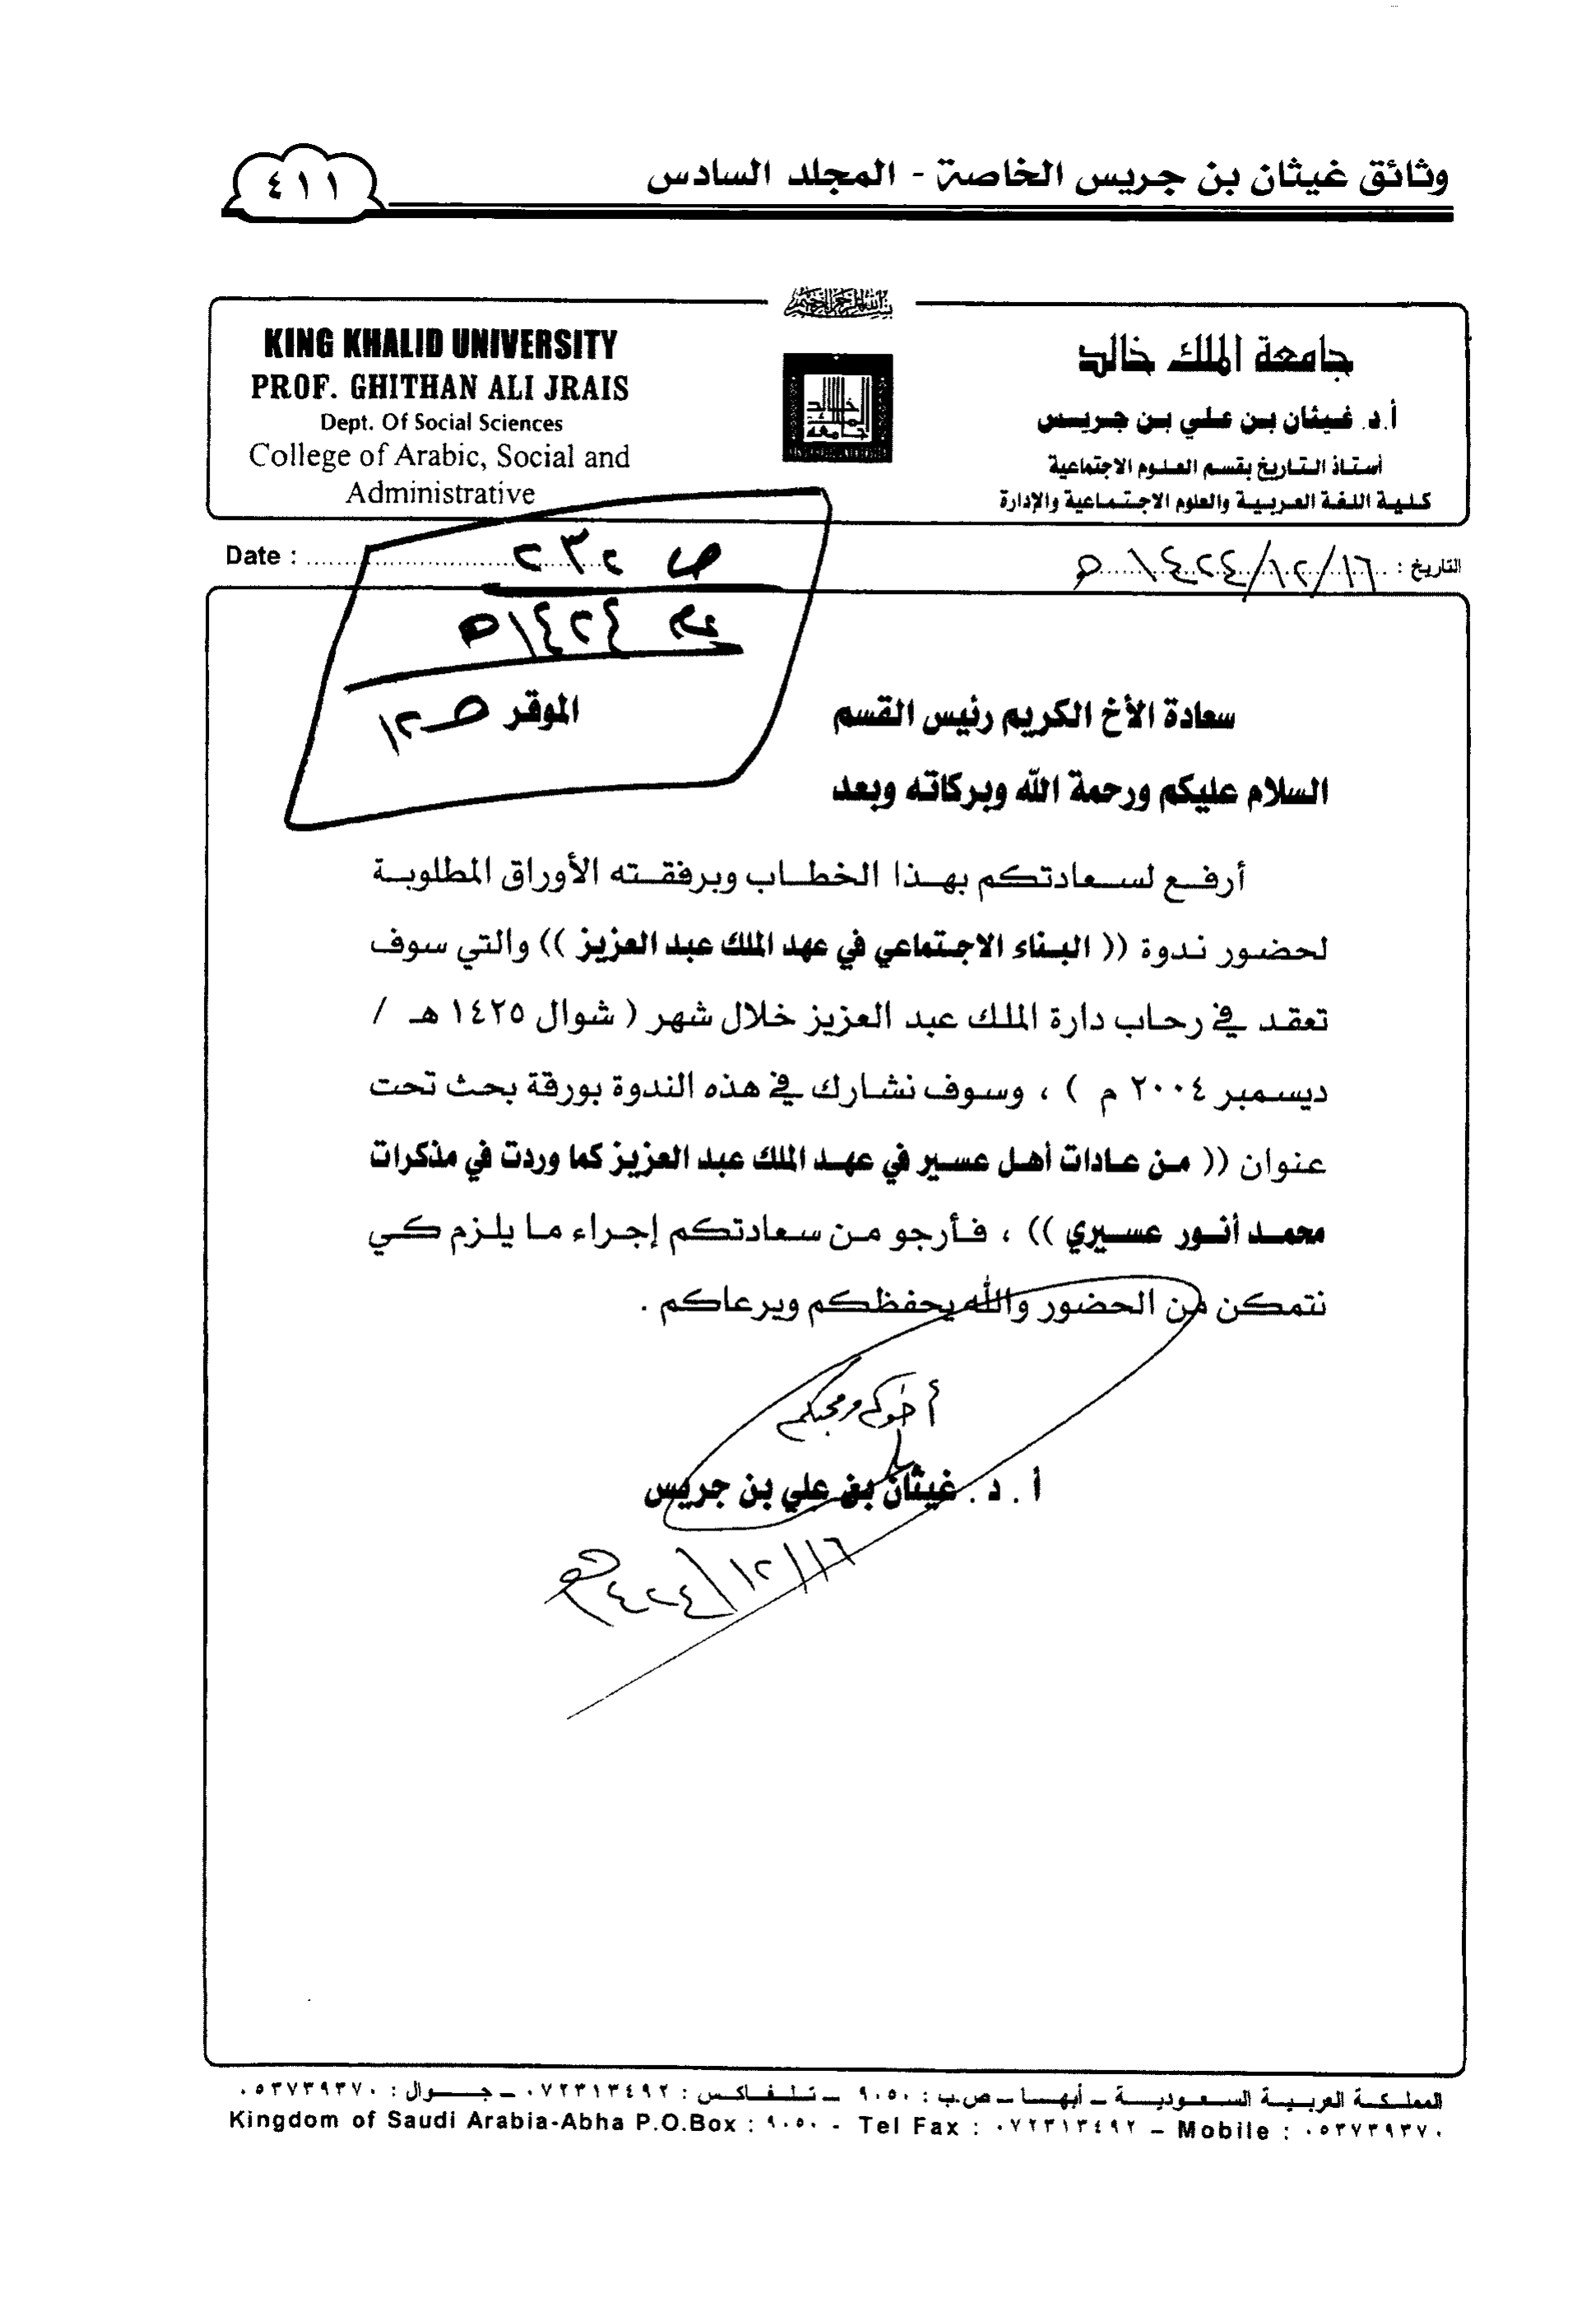 وثائق غيثان بن جريس الخاصة - المجلد السادس
٤١١
بسم الله الرحمن الرحيم
KING KHALID UNIVERSITY
PROF. GHITHAN ALI JRAIS
Dept. Of Social Sciences
College of Arabic, Social and
Administrative
جامعة الملك خالد
أ.د. غيثان بن علي بن جريس
أستاذ التاريخ بقسم العلوم الاجتماعية
كلية اللغة العربية والعلوم الاجتماعية والإدارة
Date :
التاريخ : ١٦/١٢/١٤٢٤هـ
١٤٢٤هـ
سعادة الأخ الكريم رئيس القسم الموقر
السلام عليكم ورحمة الله وبركاته وبعد
أرفع لسعادتكم بهذا الخطاب وبرفقته الأوراق المطلوبة
لحضور ندوة (( البناء الاجتماعي في عهد الملك عبد العزيز )) والتي سوف
تعقد في رحاب دارة الملك عبد العزيز خلال شهر ( شوال ١٤٢٥ هـ /
ديسمبر ٢٠٠٤ م ) ، وسوف نشارك في هذه الندوة بورقة بحث تحت
عنوان (( من عادات أهل عسير في عهد الملك عبد العزيز كما وردت في مذكرات
محمد أنور عسيري )) ، فأرجو من سعادتكم إجراء ما يلزم كي
نتمكن من الحضور والله يحفظكم ويرعاكم .
أخوكم ومحبكم
أ . د . غيثان بن علي بن جريس
١٦/١٢/١٤٢٤هـ
المملكة العربية السعودية – أبها – ص.ب : ٩٠٥٠ – تلفاكس : ٠٧٢٣١٣٤٩٢ – جوال : ٠٥٣٧٣٩٣٧٠
Kingdom of Saudi Arabia-Abha P.O.Box : ٩٠٥٠ - Tel Fax : ٠٧٢٣١٣٤٩٢ – Mobile : ٠٥٣٧٣٩٣٧٠